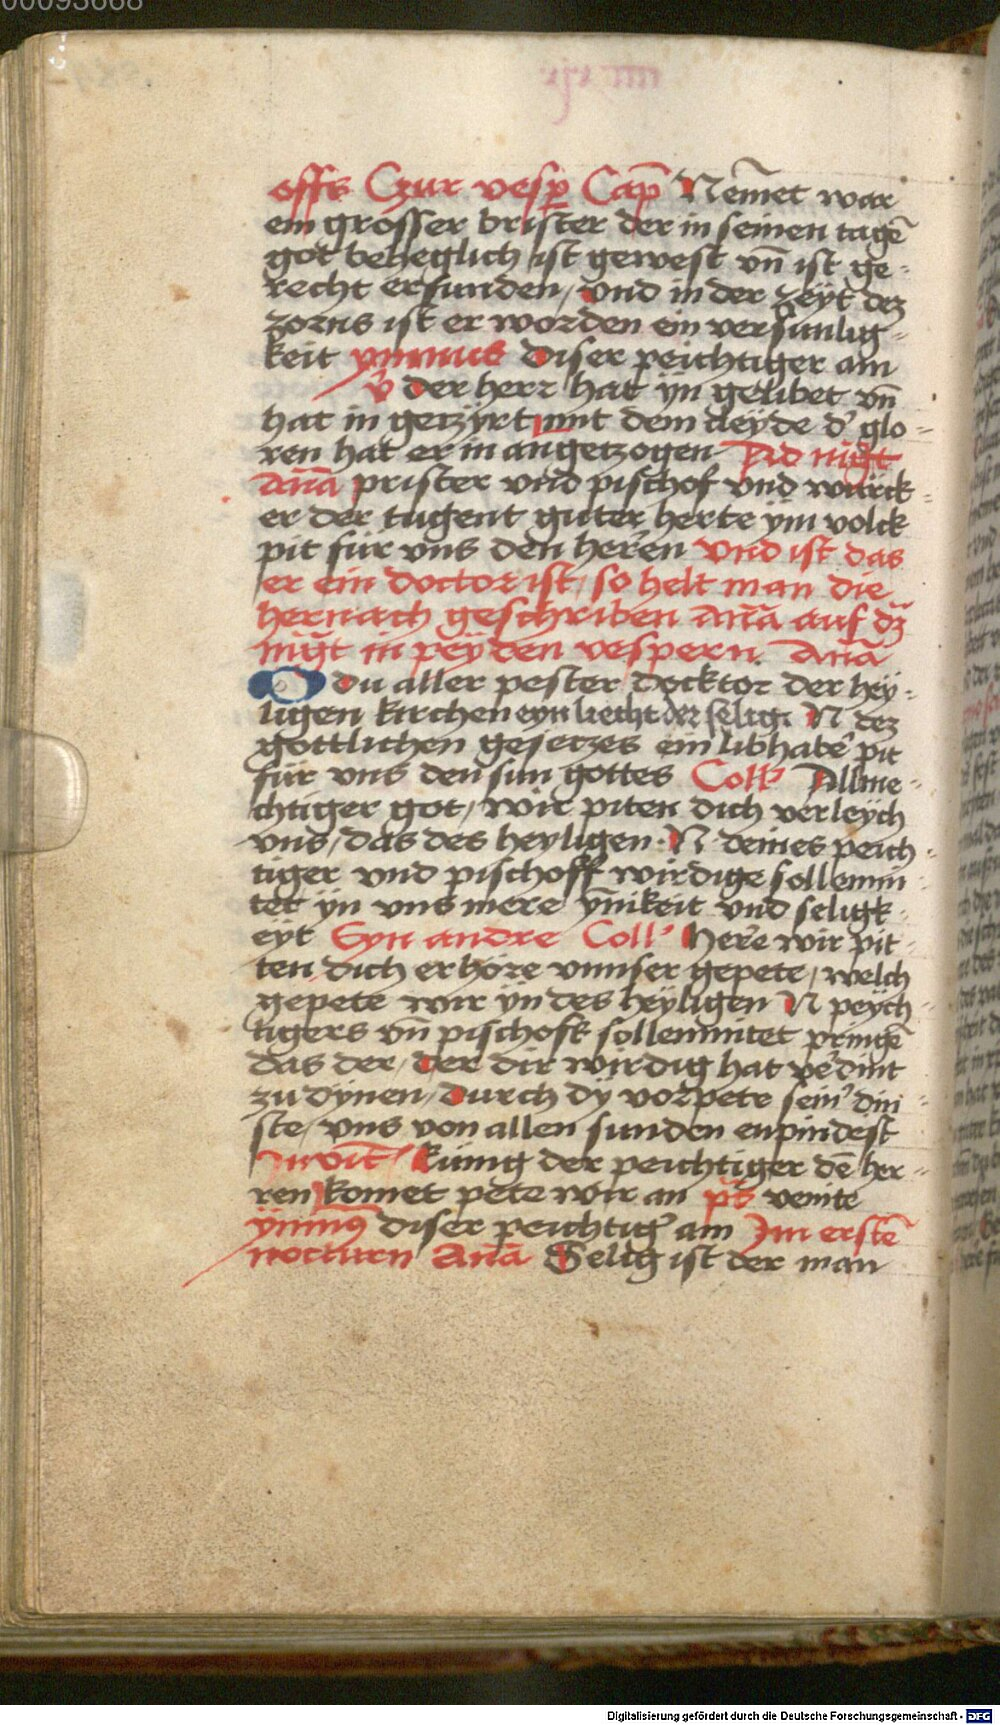 00093668
offs Czur vesp̄ Cap̄ Nēmet war
ein grosser brister der in seinen tagē
got beheglich ist gewest vn̄ ist ge-
recht erfunden / vnd in der zeyt dez
zorns ist er worden ein versunlig-
keit ymnus diser peichtiger am
v̄ der herr hat yn gelibet vn̄
hat in getzyrt mit dem cleyde d' glo-
ren hat er in angetzogen Ad
an̄a prister vnd pischof vnd wurck-
er der tugent guter herte ym volck
pit für vns den heren vnd ist das
er ein doctor ist / so helt man die
hernach geschriben an̄a auf dz
in peyden vespern. An̄a
O du aller pester docktor der hey-
ligen kirchen eyn liecht der selig. N dez
gottlichen gesetzes ein libhabē pit
für vns den sun gottes Coll' Allme-
chtiger got / wir piten dich verleych
vns / das des heyligen. N. deines peich-
tiger vnd pischoff wirdige sollemni-
tet yn vns mere ynikeit vnd seligk-
eyt Eyn andre Coll' here wir pit-
ten dich erhöre vnnser gepete / welch
gepete wir yn des heyligen N peych-
tigers vn̄ pischofs sollemnitet pringē
das der / der dir wirdig hat v'dint
zu dynen / durch dy vorpete sein' din-
ste / vns von allen sunden enpindest
Invit̄ / künig der peichtiger dē her-
ren komet pete wir an ps̄ venite
ymn9 diser peichtig' am Im erstē
nocturn An̄a Selig ist der man
Digitalisierung gefördert durch die Deutsche Forschungsgemeinschaft - DFG